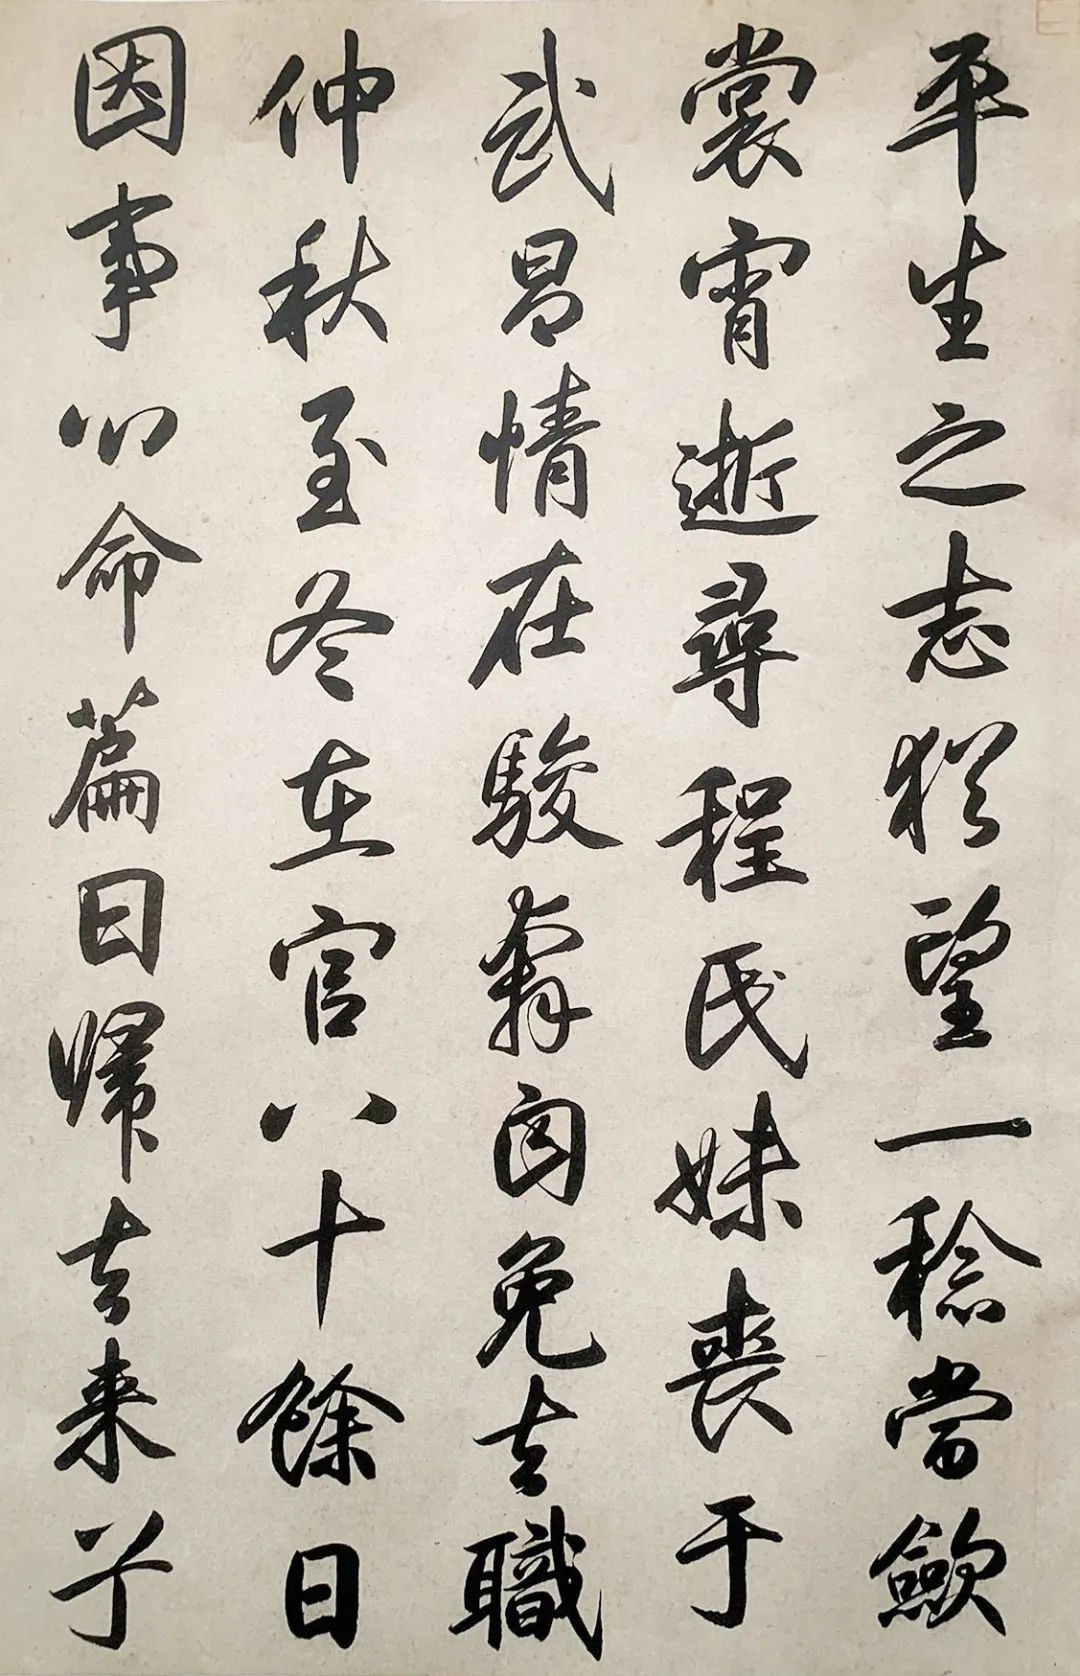 平生之志猶望一稔當歛
裳宵逝尋程氏妹喪于
武昌情在駿奔自免去職
仲秋至冬在官八十餘日
因事心命篇曰歸去来兮